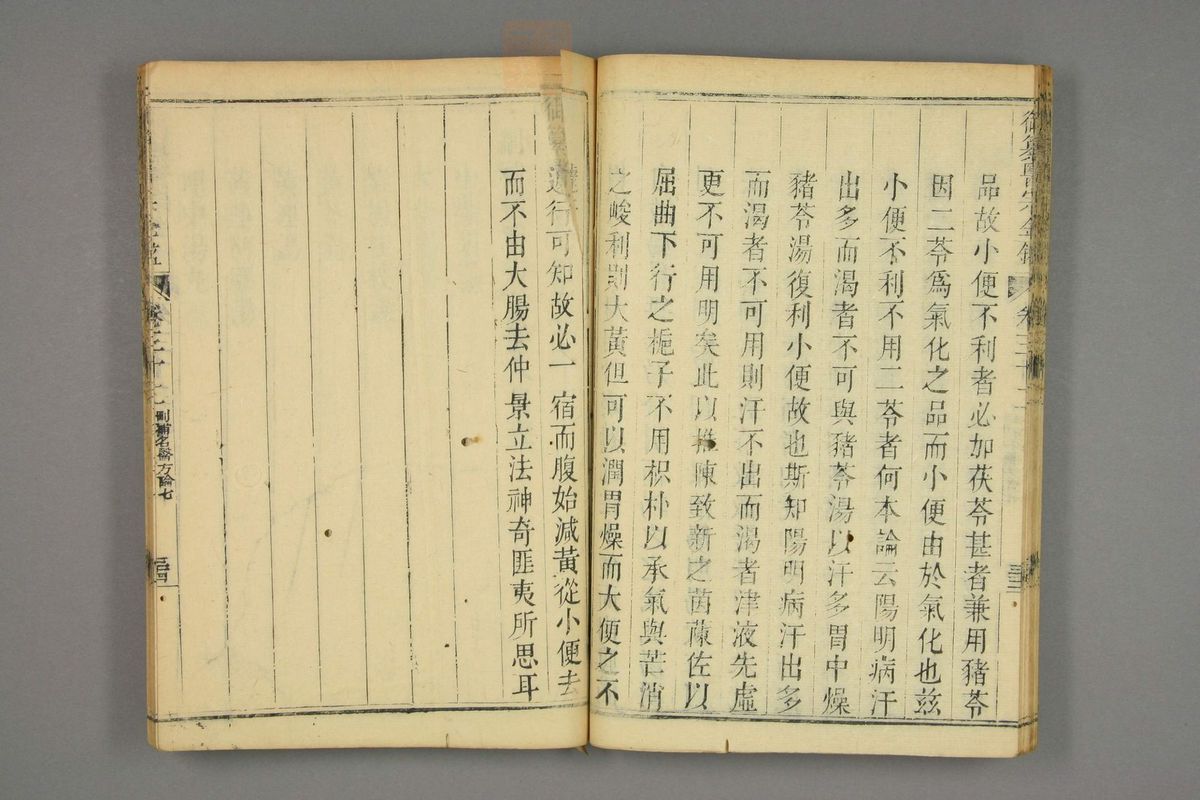 御纂醫宗金鑑
卷三十一
品故小便不利者必加茯苓甚者兼用豬苓
因二苓爲氣化之品而小便由於氣化也茲
小便不利不用二苓者何本論云陽明病汗
出多而渴者不可與豬苓湯以汗多胃中燥
豬苓湯復利小便故也斯知陽明病汗出多
而渴者不可用則汗不出而渴者津液先虛
更不可用明矣此以推陳致新之茵蔯佐以
屈曲下行之梔子不用枳朴以承氣與芒消
之峻利則大黃但可以潤胃燥而大便之不
遽行可知故必一宿而腹始減黃從小便去
而不由大腸去仲景立法神奇匪夷所思耳
刪補名醫方論七